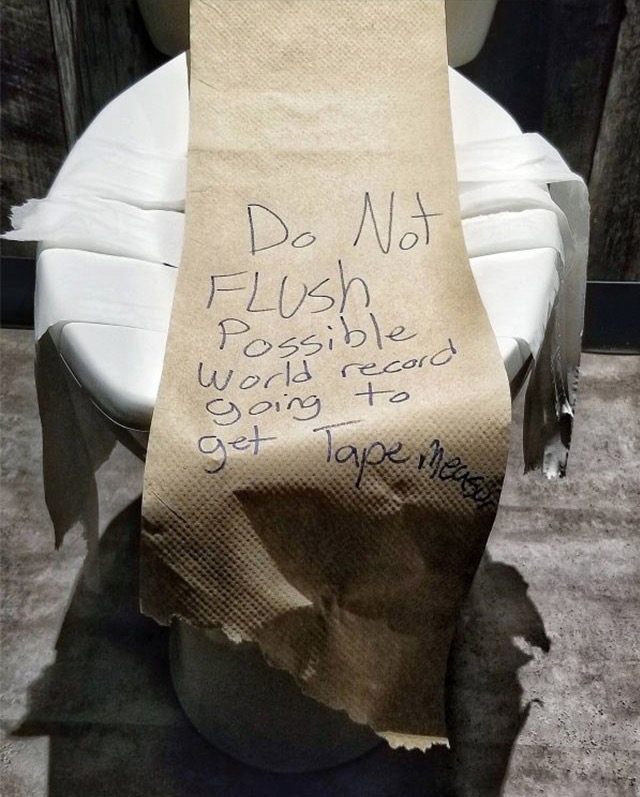 Do Not
FLUsh
Possible
World record
going to
get Tape measure